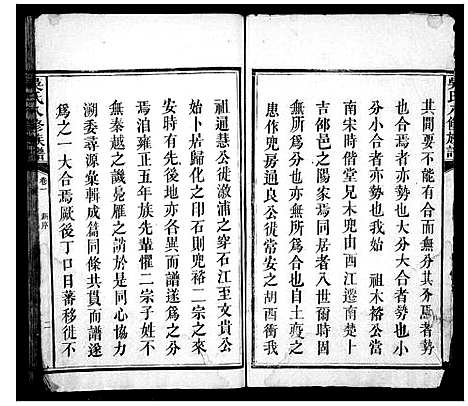 吳氏八修族譜
其間要不能有合而無分其甚者勢
分小合者亦勢也大分大合者亦勢
也合與分無所容心也我始　祖木裕公當
南宋時偕堂兄木兜由江西遷南楚卜
吉邵邑之陽家焉同居者八世爾時
無所爲分也亦無所爲合也自土良之
患作兜房通良公徙常安之胡西衝我
祖通慧公徙漵浦之穿石江至文貴公
始卜居歸化之印石則兜裕二宗之來
安時有先後地亦各異而譜遂爲之分
焉洎雍正五年族先輩懼二宗子姓不
無秦越之譏舁雁之誚於是同心協力
溯委尋源彙輯成篇同條共貫而譜遂
爲之一大合焉厥後丁口日蕃移徙不
吳氏八修族譜
卷一
新序